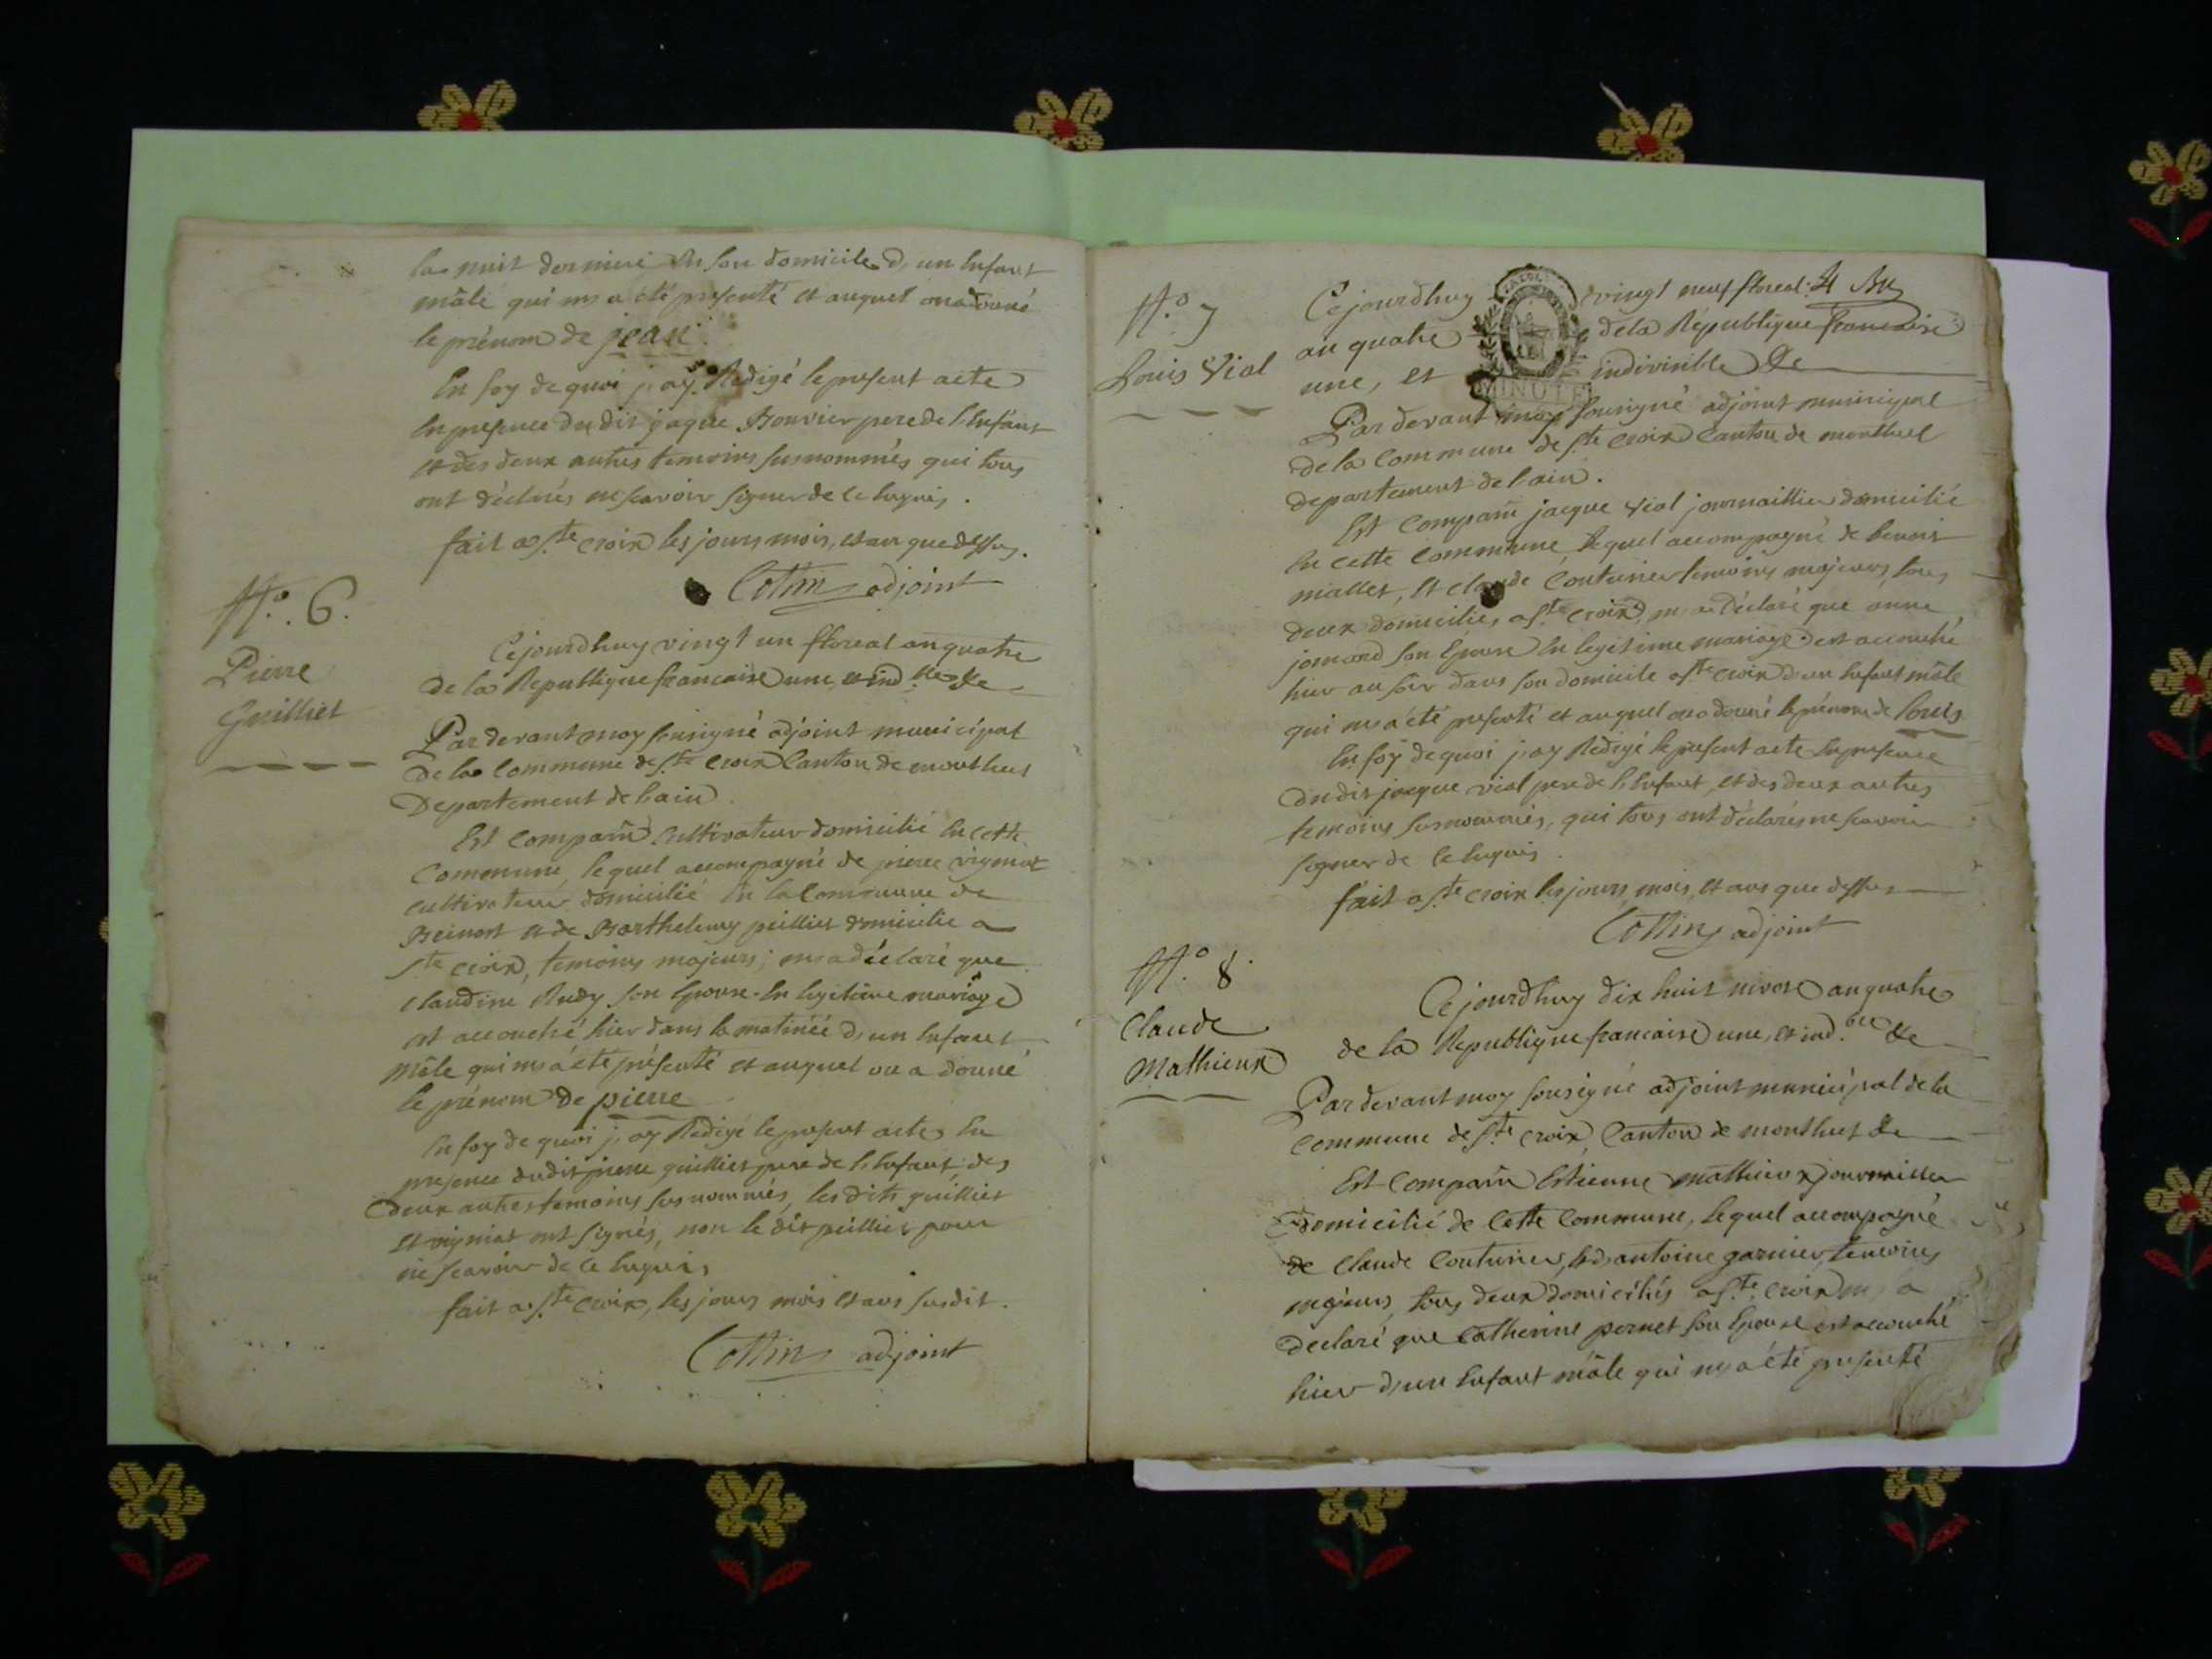 la nuit derniere en son domicile d'un enfant
mâle qui m'a été presenté et auquel on a donné
le prénom de jean
En foy de quoi j'ay Redigé le present acte
en presence du dit jaque Bouvier pere de l'enfant
et des deux autres temoins susnommés qui tous
ont déclarés ne scavoir signer de ce enquis.
fait a Ste croix les jours mois, et an que dessus.
Cottin adjoint
N.° 6.
Pierre
Guilliet
Cejourdhuy vingt un floreal an quatre
de la Republique francaise une, et ind.ble &c
Par devant moy sousigné adjoint municipal
de la Commune de Ste croix Canton de montluel
Departement de l'ain
Est comparu cultivateur domicilié en cette
Commune, lequel accompagné de pierre vigniat
cultivateur domicilié en la Commune de
et de Barthelemy peillier domicilié a
Ste croix, temoins majeurs; m'a déclaré que
claudine Rudy son épouse en legitime mariage
est accouché hier dans la matinée d'un enfant
mâle qui m'a été présenté et auquel on a donné
le prénom de pierre
En foy de quoi j'ay Redigé le present acte en
presence du dit pierre guilliet pere de l'enfant, des
deux autres temoins susnommés, les dits guilliet
et vigniat ont signés, non le dit peillier pour
ne scavoir de ce enquis
fait a Ste croix, les jours mois et ans susdit.
Cottin adjoint
N.° 7
Louis Vial
Cejourdhuy vingt neuf floreal 4
an quatre de la République francaise
une, et indivisible &c
MINUTE
Par devant moy sousigné adjoint municipal
de la Commune de Ste croix Canton de montluel
departement de l'ain.
Est comparu jacque vial journaillier domicilié
en cette Commune lequel accompagné de benoit
mallet, et claude Couturier temoins majeurs, tous
deux domicilies a Ste croix, m'a déclaré que anne
jomard son épouse en legitime mariage est accouché
hier au soir dans son domicile a Ste croix d'un enfant mâle
qui m'a été presenté et auquel on a donné le prénom de Louis
En foy de quoi j'ay Redigé le present acte en presence
du dit jacque vial pere de l'enfant, et des deux autres
temoins susnommés, qui tous ont déclarés ne scavoir
signer de ce enquis.
fait a Ste croix les jours, mois, et ans que dessus
Cottin adjoint
N.° 8.
Claude
Mathieux
Cejourdhuy dix huit nivose an quatre
de la Republique francaise une, et ind.ble &c
Par devant moy sousigné adjoint municipal de la
commune de Ste croix, Canton de montluel &c
Est comparu Estienne mathieux journaillier
domicilié de Cette Commune, lequel accompagné
de Claude Couturier, & d'antoine garnier, temoins
majeurs, tous deux domiciliés a Ste croix m'a
declaré que Catherine pernet son épouse est accouché
hier d'un enfant mâle qui m'a été presenté